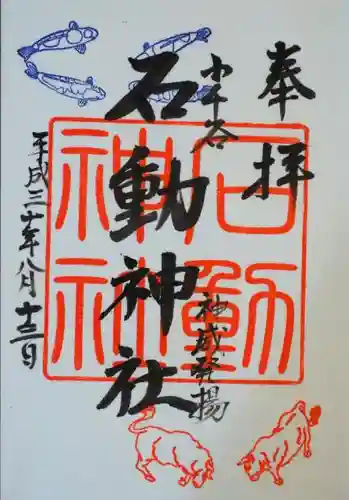 奉拝
小千谷
石動神社
神威発揚
平成三十年八月十三日
石動
神社